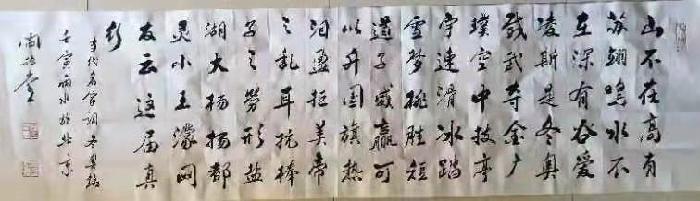 山不在高有
苏翊鸣水不
在深有谷爱
凌斯是冬奥
威武夺金广
璞空中技亭
宇速滑冰踏
雪梦桃胜短
道子威赢可
以升国旗热
泪盈拒美帝
之乱耳抗棒
子之劳形盐
湖大杨扬都
灵小王濛网
友云这届真
行
壬寅雨水于北京